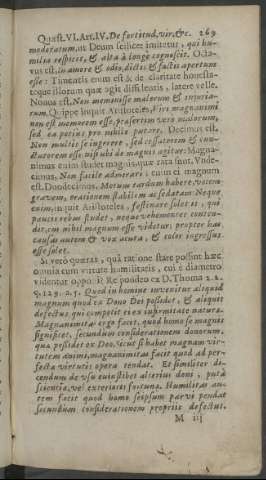 Quæst. VI. Art. IV. De fortitud. vir. &c. 269
moderatum, ut Deum scilicet imitetur, qui hu-
milia respicit, & alta à longè cognoscit. Octa-
vus est, in amore & odio, dictis & factis apertum
esse: Timentis enim est & de claritate honesta-
teque illorum quæ agit diffidentis, latere velle.
Nonus est. Non meminisse malorum & injuria-
rum. Quippe inquit Aristoteles, Viri magnanimi
non est memorem esse, præsertim vero malorum,
sed ea potius pro nihilo putare. Decimus est,
Non multis se ingerere, sed cessatorem & cun-
ctatorem esse nisi ubi de magnis agitur: Magna-
nimus enim studet magnis quæ rara sunt. Unde-
cimus, Non facile admirari: cum ei magnum
est. Duodecimus, Motum tardum habere, vocem
gravem, orationem stabilem ac sedatam: Neque
enim, inquit Aristoteles, festinare solet is, qui
paucis rebus studet, neque vehementer conten-
dit, cui nihil magnum esse videtur: propter has
causas autem & vox acuta, & celer ingressus
esse solet.
Si verò quæras, quâ ratione stare possint hæc
omnia cum virtute humilitatis, cui è diametro
videntur opponi? Respondeo ex D. Thoma 2. 2.
q. 129. a. 3. Quod in homine invenitur aliquid
magnum quod ex Dono Dei possidet, & aliquis
defectus qui competit ei ex infirmitate naturæ.
Magnanimitas ergo facit, quod homo se magnis
dignificet, secundum considerationem donorum,
quæ possidet ex Deo, sicut si habet magnam vir-
tutem animi, magnanimitas facit quod ad per-
fecta virtutis opera tendat. Et similiter di-
cendum de usu cujuslibet alterius boni, puta
scientiæ, vel exterioris fortunæ. Humilitas au-
tem facit quod homo seipsum parvi pendat
secundum considerationem proprii defectus.
M iij